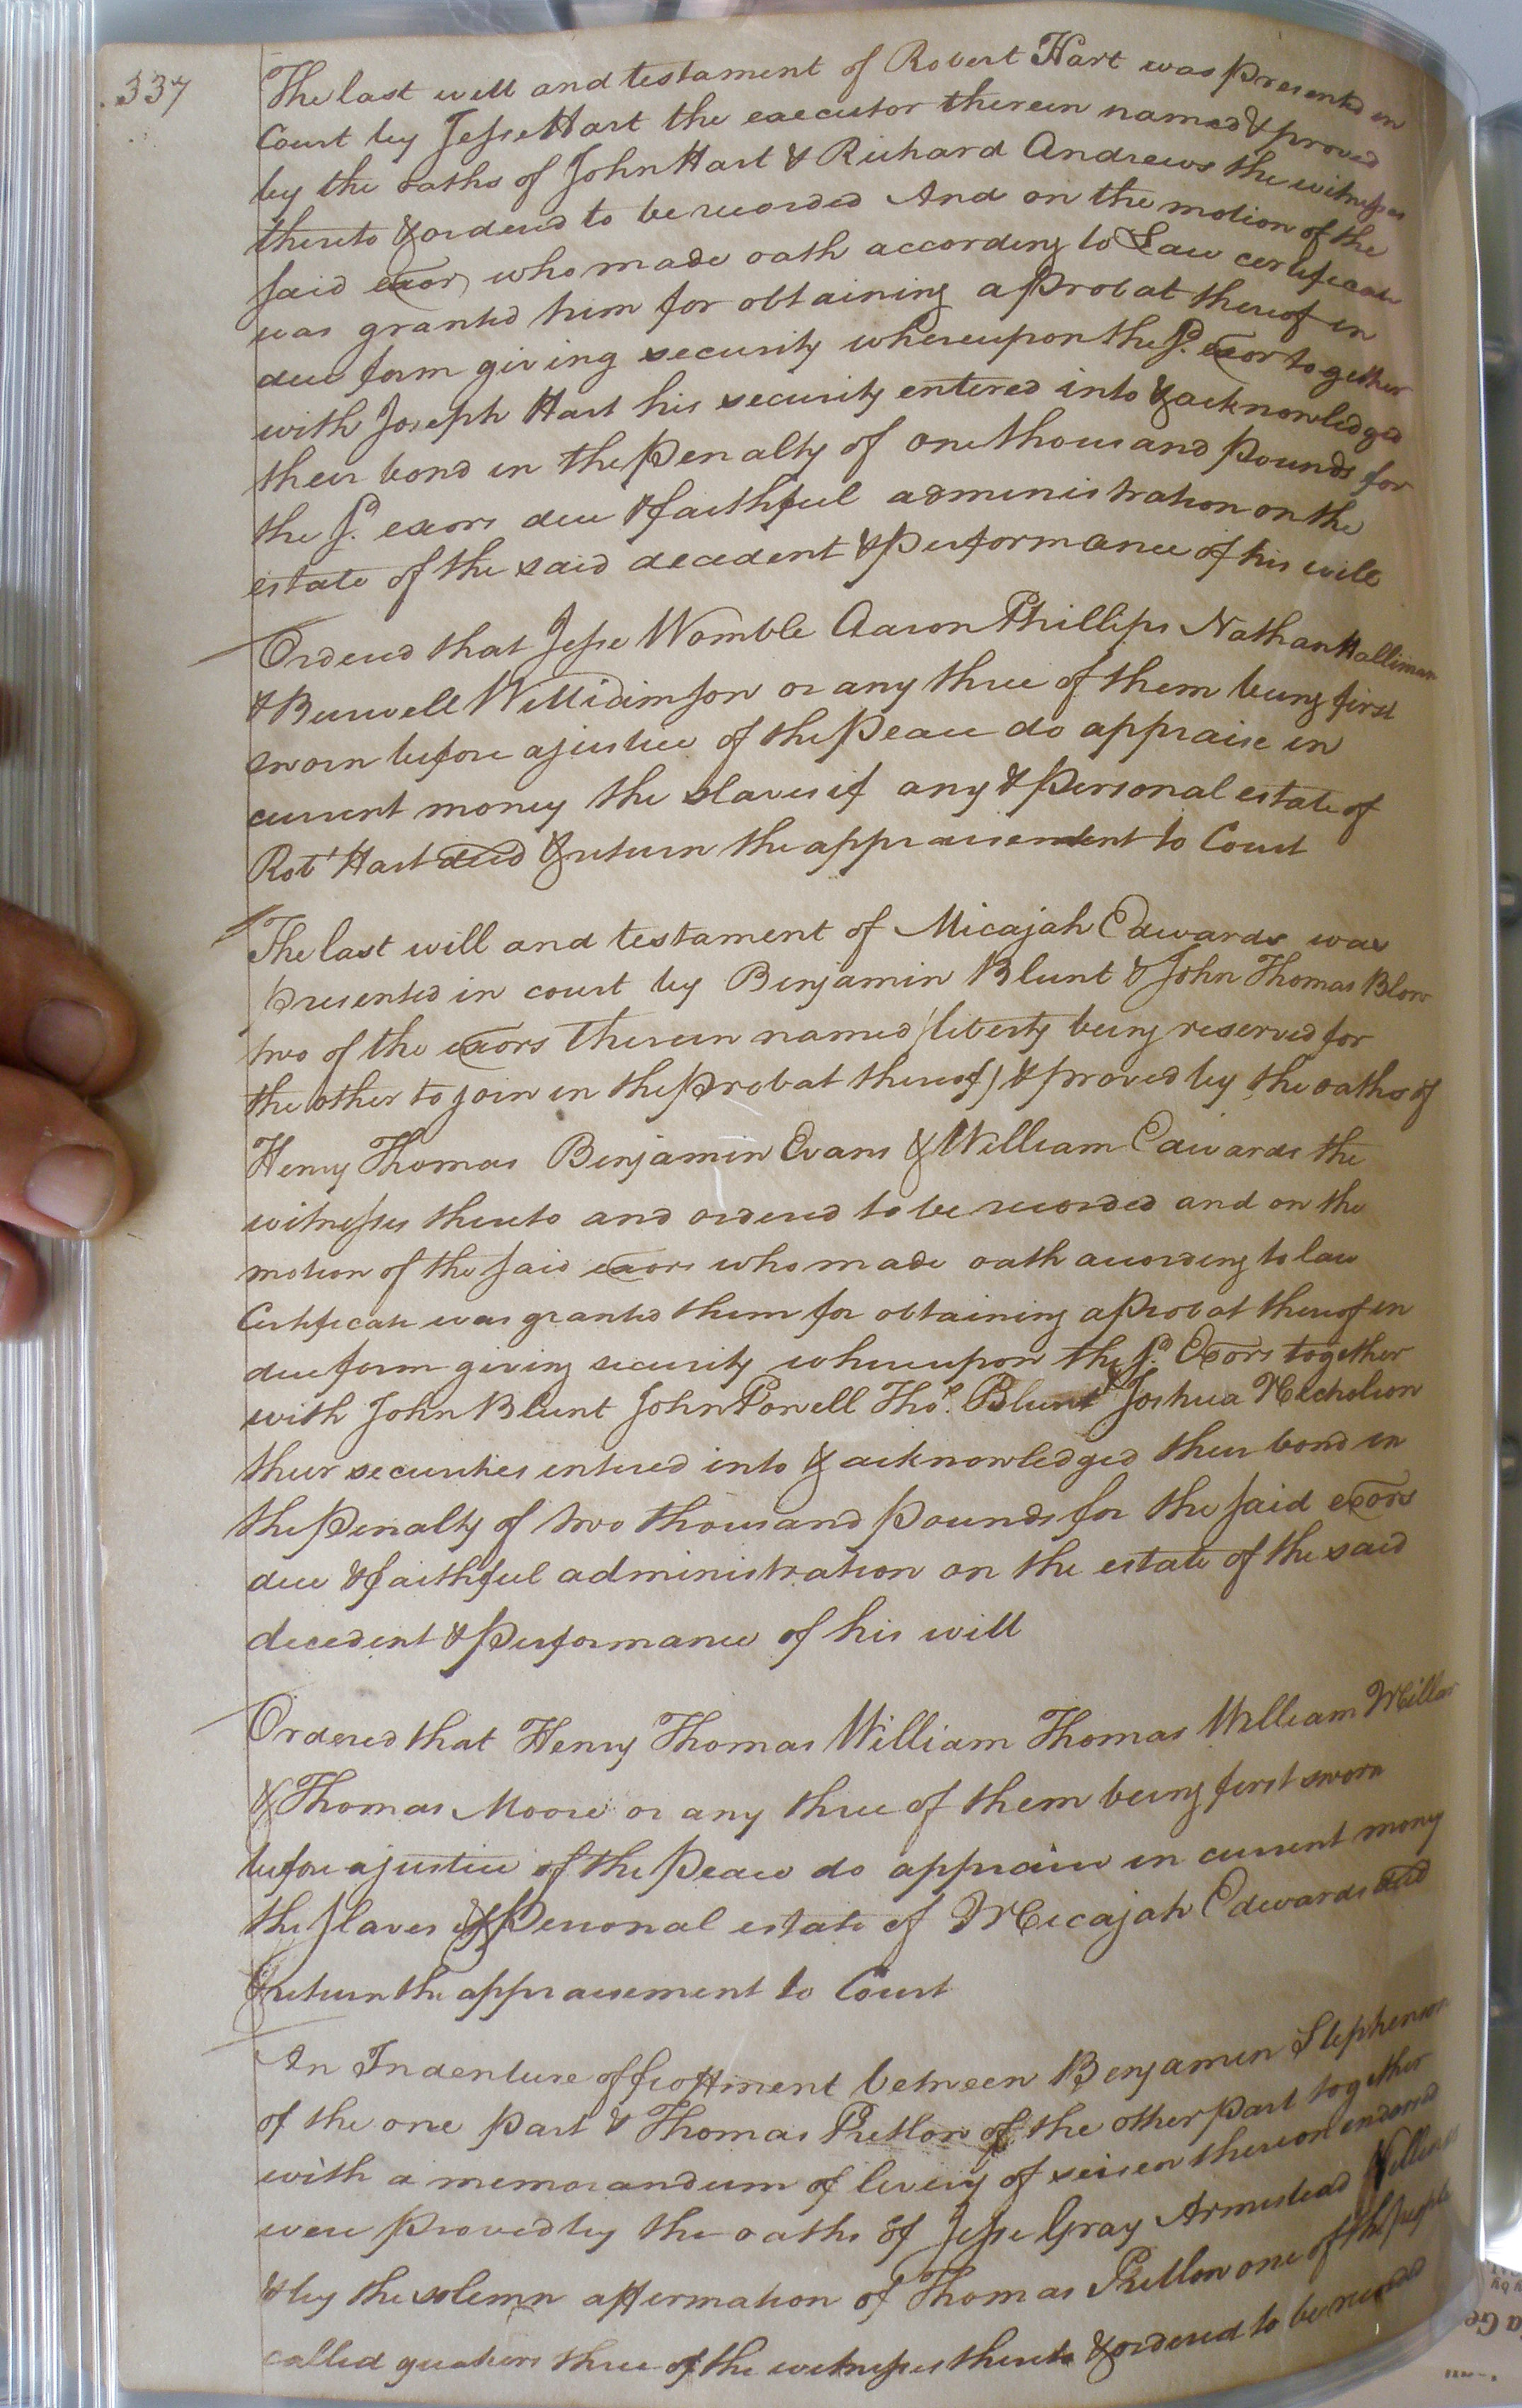 337
The last will and testament of Robert Hart was presented in
Court by Jesse Hart the executor therein named & proved
by the oaths of John Hart & Richard Andrews the witnesses
thereto & ordered to be recorded And on the motion of the
said exor who made oath according to Law certificate
was granted him for obtaining a probat thereof in
due form giving security whereupon the sd. exor together
with Joseph Hart his security entered into & acknowledged
their bond in the penalty of one thousand pounds for
the sd. exors due & faithful administration on the
estate of the said decedent & performance of his will
Ordered that Jesse Womble Aaron Phillips Nathan Halliman
& Burwell Williamson or any three of them being first
sworn before a justice of the peace do appraise in
current money the slaves if any & personal estate of
Robt Hart decd & return the appraisement to Court
The last will and testament of Micajah Edwards was
presented in court by Benjamin Blunt & John Thomas Blow
two of the exors therein named (liberty being reserved for
the other to join in the probat thereof) & proved by the oaths of
Henry Thomas Benjamin Evans & William Edwards the
witnesses thereto and ordered to be recorded and on the
motion of the said exors who made oath according to law
Certificate was granted them for obtaining a probat thereof in
due form giving security whereupon the sd. Exors together
with John Blunt John Powell Thos. Blunt & Joshua Nicholson
their securities entered into & acknowledged their bond in
the penalty of two thousand pounds for the said exors
due & faithful administration on the estate of the said
decedent & performance of his will
Ordered that Henry Thomas William Thomas William Millar
& Thomas Moore or any three of them being first sworn
before a justice of the peace do appraise in current mony
the slaves & personal estate of Micajah Edwards decd
& return the appraisement to Court
An Indenture of feoffment between Benjamin Stephenson
of the one part & Thomas Pretlow of the other part together
with a memorandum of livery of seisen thereon endorsed
were proved by the oaths of Jesse Gray Armistead
& by the solemn affirmation of Thomas Pretlow one of the people
called quakers three of the witnesses thereto & ordered to be recorded